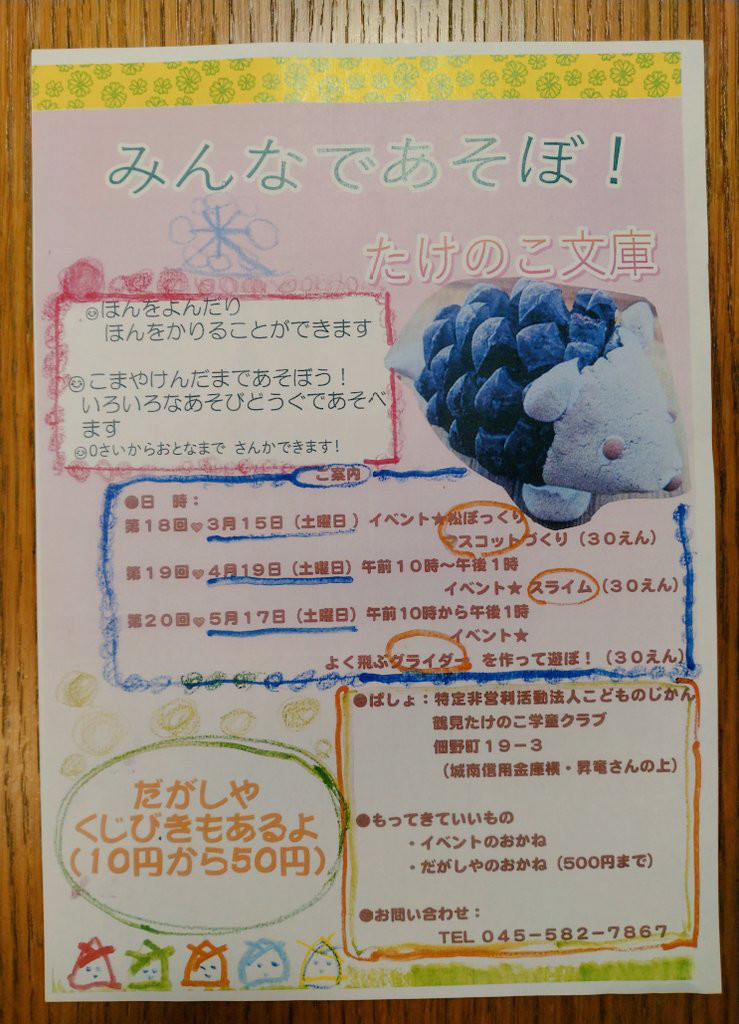 みんなであそぼ！
たけのこ文庫
ほんをよんだり
ほんをかりることができます
こまやけんだまであそぼう！
いろいろなあそびどうぐであそべ
ます
0さいからおとなまで さんかできます！
ご案内
●日 時：
第18回♥3月15日（土曜日）イベント★松ぼっくり
マスコットづくり（30えん）
第19回♥4月19日（土曜日）午前10時～午後1時
イベント★ スライム（30えん）
第20回♥5月17日（土曜日）午前10時から午後1時
イベント★
よく飛ぶグライダー を作って遊ぼ！（30えん）
●ばしょ：特定非営利活動法人こどものじかん
鶴見たけのこ学童クラブ
佃野町19－3
（城南信用金庫横・昇竜さんの上）
だがしや
くじびきもあるよ
（10円から50円）
●もってきていいもの
・イベントのおかね
・だがしやのおかね（500円まで）
●お問い合わせ：
TEL 045-582-7867